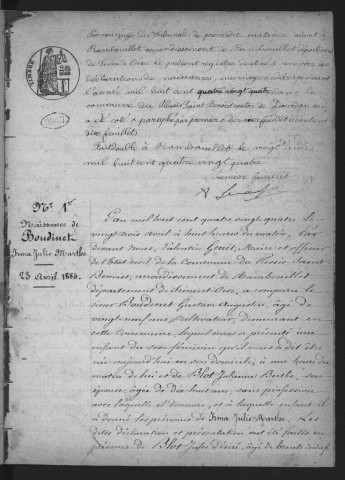 Par nous juge du Tribunal de première instance séant à
Rambouillet arrondissement de Rambouillet département
de Seine et Oise le présent registre destiné à recevoir les
déclarations de naissances, mariages et décès pendant
l'année mil huit cent quatre vingt quatre dans la
commune du Plessis Saint Benoist canton de Dourdan
a été coté & paraphé par première et dernier feuillet contenant
feuillets
Fait double à Rambouillet le vingt
mil huit cent quatre vingt quatre
Premier feuillet
TIMBRE
N° 1er
Naissance de
Boudinet
Irma Julie Marthe
23 Avril 1884.
L'an mil huit cent quatre vingt quatre le
vingt trois avril à huit heures du matin, Par
devant nous, Valentin Maire et officier
de l'Etat civil de la Commune du Plessis Saint
Benoist, arrondissement de Rambouillet
département de Seine et Oise, a comparu le
sieur Boudinet Gustave Augustin, âgé de
vingt neuf ans, Cultivateur, demeurant en
cette Commune, lequel nous a présenté une
enfant du sexe féminin qu'il nous a dit être
née aujourd'hui en son domicile, à une heure du
matin de lui et de Blot Julienne Berthe, son
épouse, âgée de dix huit ans, sans profession
avec laquelle il demeure, et à laquelle enfant il
a donné les prénoms de Irma Julie Marthe. Les
dites déclaration et présentation ont été faites en
présence de Blot Jules Désiré, âgé de trente